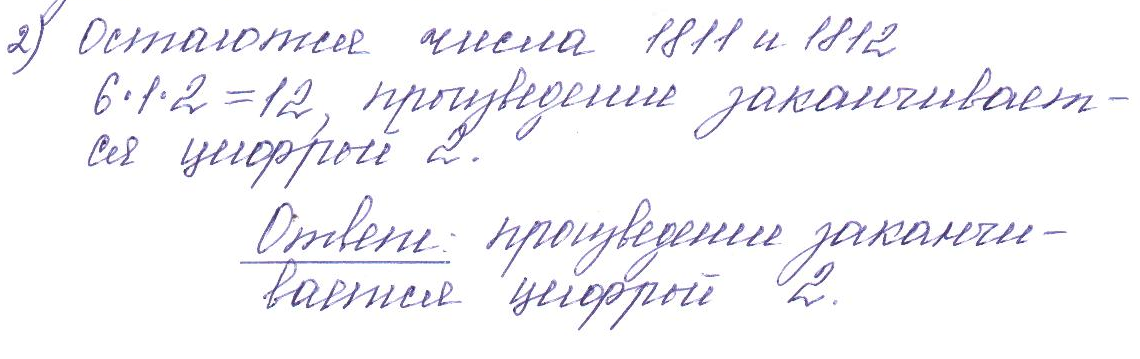 2) Остаются числа 1811 и 1812
6·1·2=12, произведение заканчивает-
ся цифрой 2.
Ответ: произведение заканчи-
вается цифрой 2.